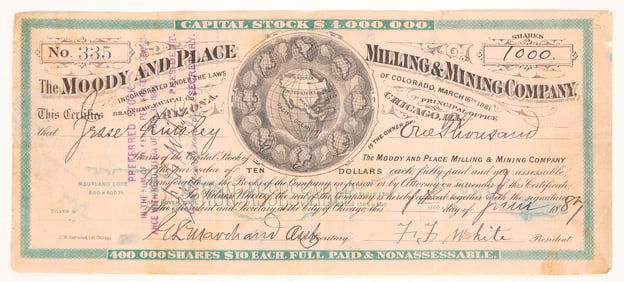 CAPITAL STOCK $4,000,000.
No. 335
SHARES
1000.
The MOODY AND PLACE MILLING & MINING COMPANY,
INCORPORATED UNDER THE LAWS OF COLORADO, MARCH 16TH 1881.
ARIZONA.
PRINCIPAL OFFICE
CHICAGO, ILL.
This Certifies
that Jesse IS THE OWNER OF One Thousand
Shares of the Capital Stock of The MOODY AND PLACE MILLING & MINING COMPANY
the par value of TEN DOLLARS each, fully paid and not assessable,
transferable on the Books of the Company in person or by Attorney on surrender of this Certificate.
In Witness Whereof the seal of the Company is hereof affixed together with the signatures
of the President and Secretary at the City of Chicago this day of June 1887
Secretary. F. F. White President
400 000 SHARES $10 EACH, FULL PAID & NONASSESSABLE.
PREFERRED
PRESIDENT.
SECRETARY.